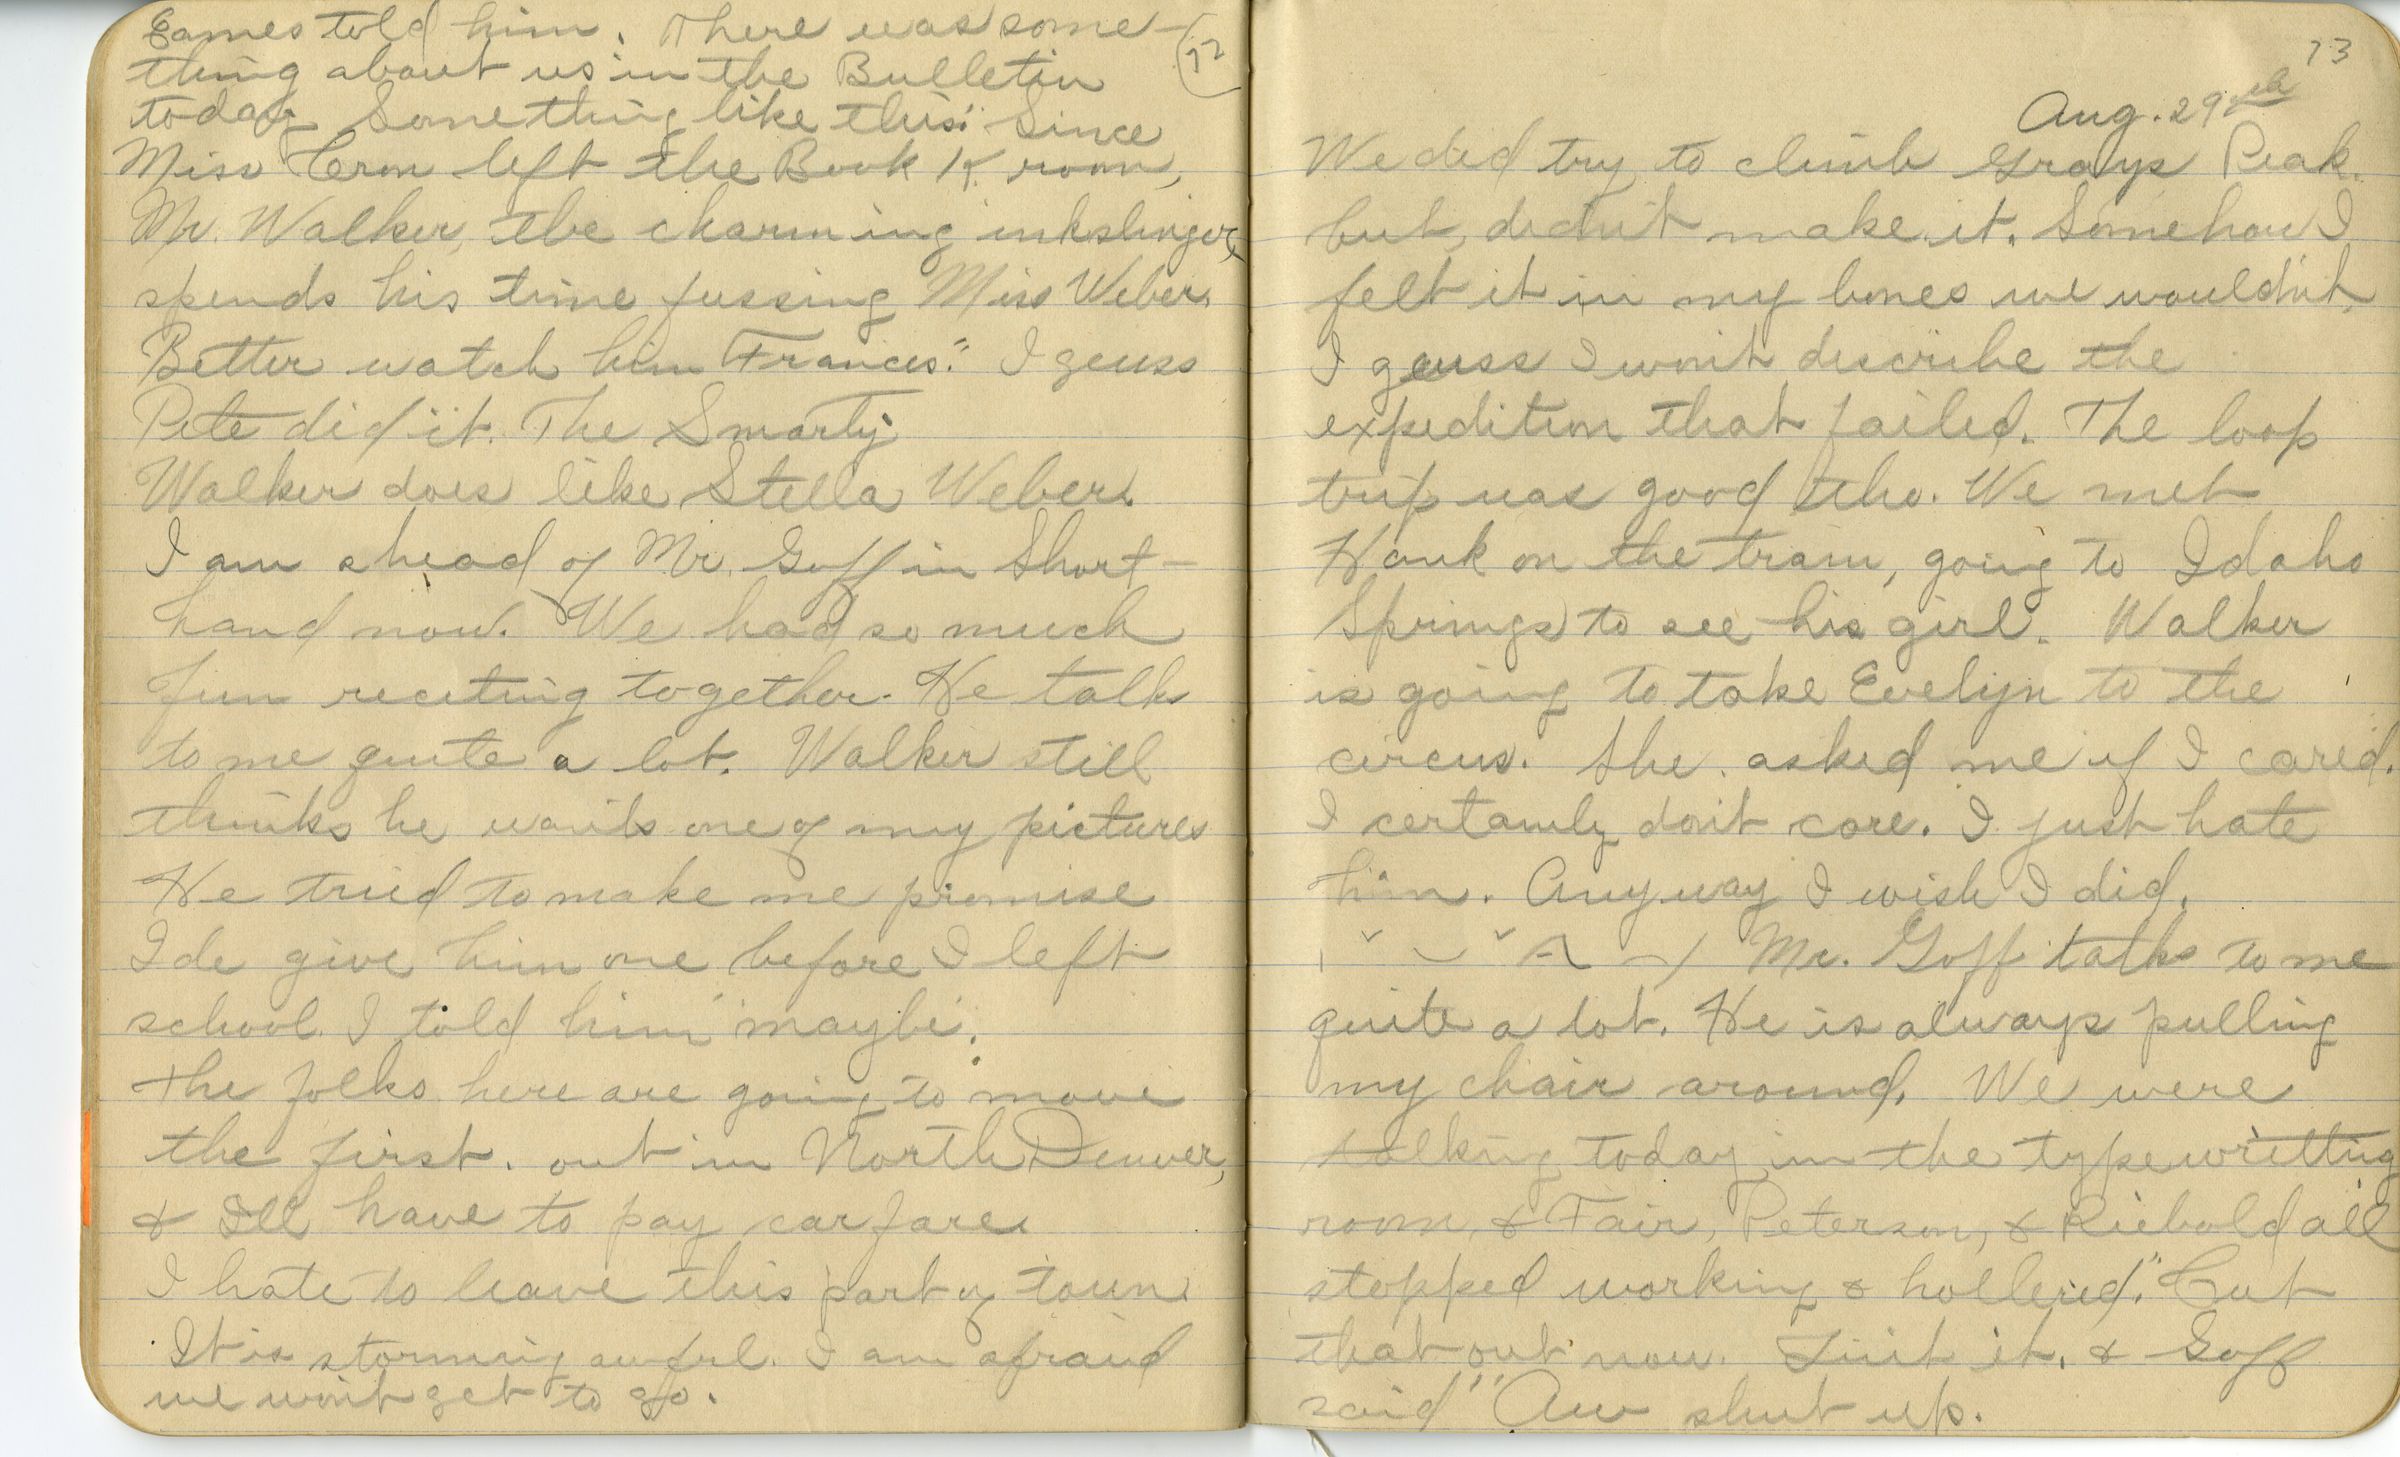 Eames told him. There was some-
72
thing about us in the Bulletin
today Something like this: "Since
Miss Term left the Book K. room,
Mr. Walker, the charming inkslinger,
spends his time fussing Miss Weber.
Better watch him Frances." I geuss
Pete did it. The Smarty
Walker does like Stella Weber.
I am ahead of Mr. Goff in Short-
hand now. We had so much
fun reciting together. He talks
to me quite a lot. Walker still
thinks he wants one of my pictures
He tried to make me promise
Ide give him one before I left
school. I told him "maybe".
The folks here are going to move
the first. out in North Denver,
& I'll have to pay carfare.
I hate to leave this part of town
It is storming awful. I am afraid
we wont get to go.
73
Aug. 29th
We did try to climb Grays Peak.
but, didn't make it. Somehow I
felt it in my bones we wouldn't.
I geuss I won't describe the
expedition that failed. The loop
trip was good tho. We met
Hank on the train, going to Idaho
Springs to see his girl. Walker
is going to take Evelyn to the
circus. She asked me if I cared.
I certainly don't care. I just hate
him. Anyway I wish I did.
Mr. Goff talks to me
quite a lot. He is always pulling
my chair around. We were
talking today in the typewritting
room, & Fair, Peterson, & Riebold all
stopped working & hollered," Cut
that out now. Quit it. & Goff
said "Aw shut up.